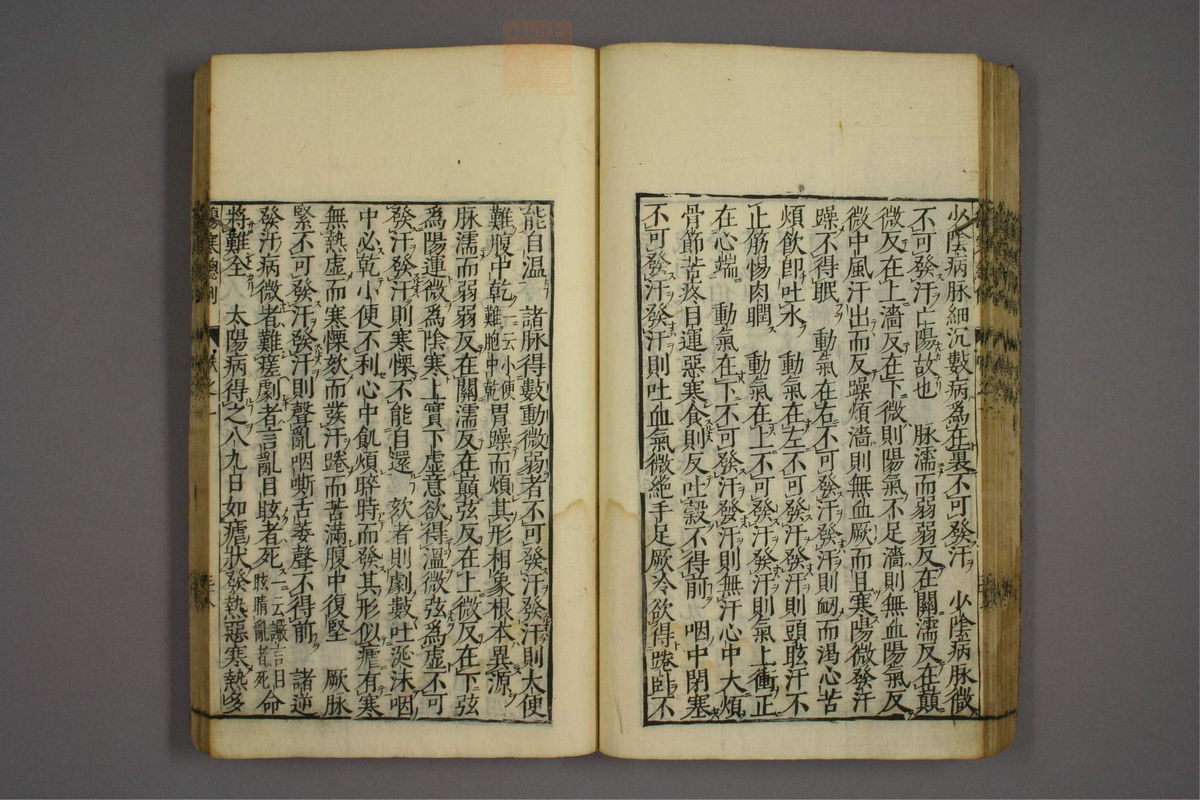 少陰病脉細沉數病爲在裏不可發汗 少陰病脉微
不可發汗亡陽故也 脉濡而弱弱反在關濡反在巔
微反在上濇反在下微則陽氣不足濇則無血陽氣反
微中風汗出而反躁煩濇則無血厥而且寒陽微發汗
躁不得眠 動氣在右不可發汗發汗則衂而渴心苦
煩飲卽吐水 動氣在左不可發汗發汗則頭眩汗不
止筋惕肉瞤 動氣在上不可發汗發汗則氣上衝正
在心端 動氣在下不可發汗發汗則無汗心中大煩
骨節苦疼目運惡寒食則反吐穀不得前 咽中閉塞
不可發汗發汗則吐血氣微絶手足厥冷欲得踡臥不
能自溫 諸脉得數動微弱者不可發汗發汗則大便
難腹中乾一云小便難胞中乾胃躁而煩其形相象根本異源
脉濡而弱弱反在關濡反在巔弦反在上微反在下弦
爲陽運微爲陰寒上實下虛意欲得溫微弦爲虛不可
發汗發汗則寒慄不能自還 欬者則劇數吐涎沫咽
中必乾小便不利心中飢煩晬時而發其形似瘧有寒
無熱虛而寒慄欬而發汗踡而苦滿腹中復堅 厥脉
緊不可發汗發汗則聲亂咽嘶舌萎聲不得前 諸逆
發汗病微者難瘥劇者言亂目眩者死一云讝言目眩睛亂者死命
將難全 太陽病得之八九日如瘧狀發熱惡寒熱多